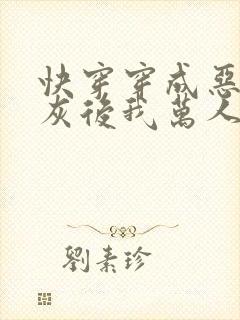 快穿穿成惡
灰後我萬人
劉素珍